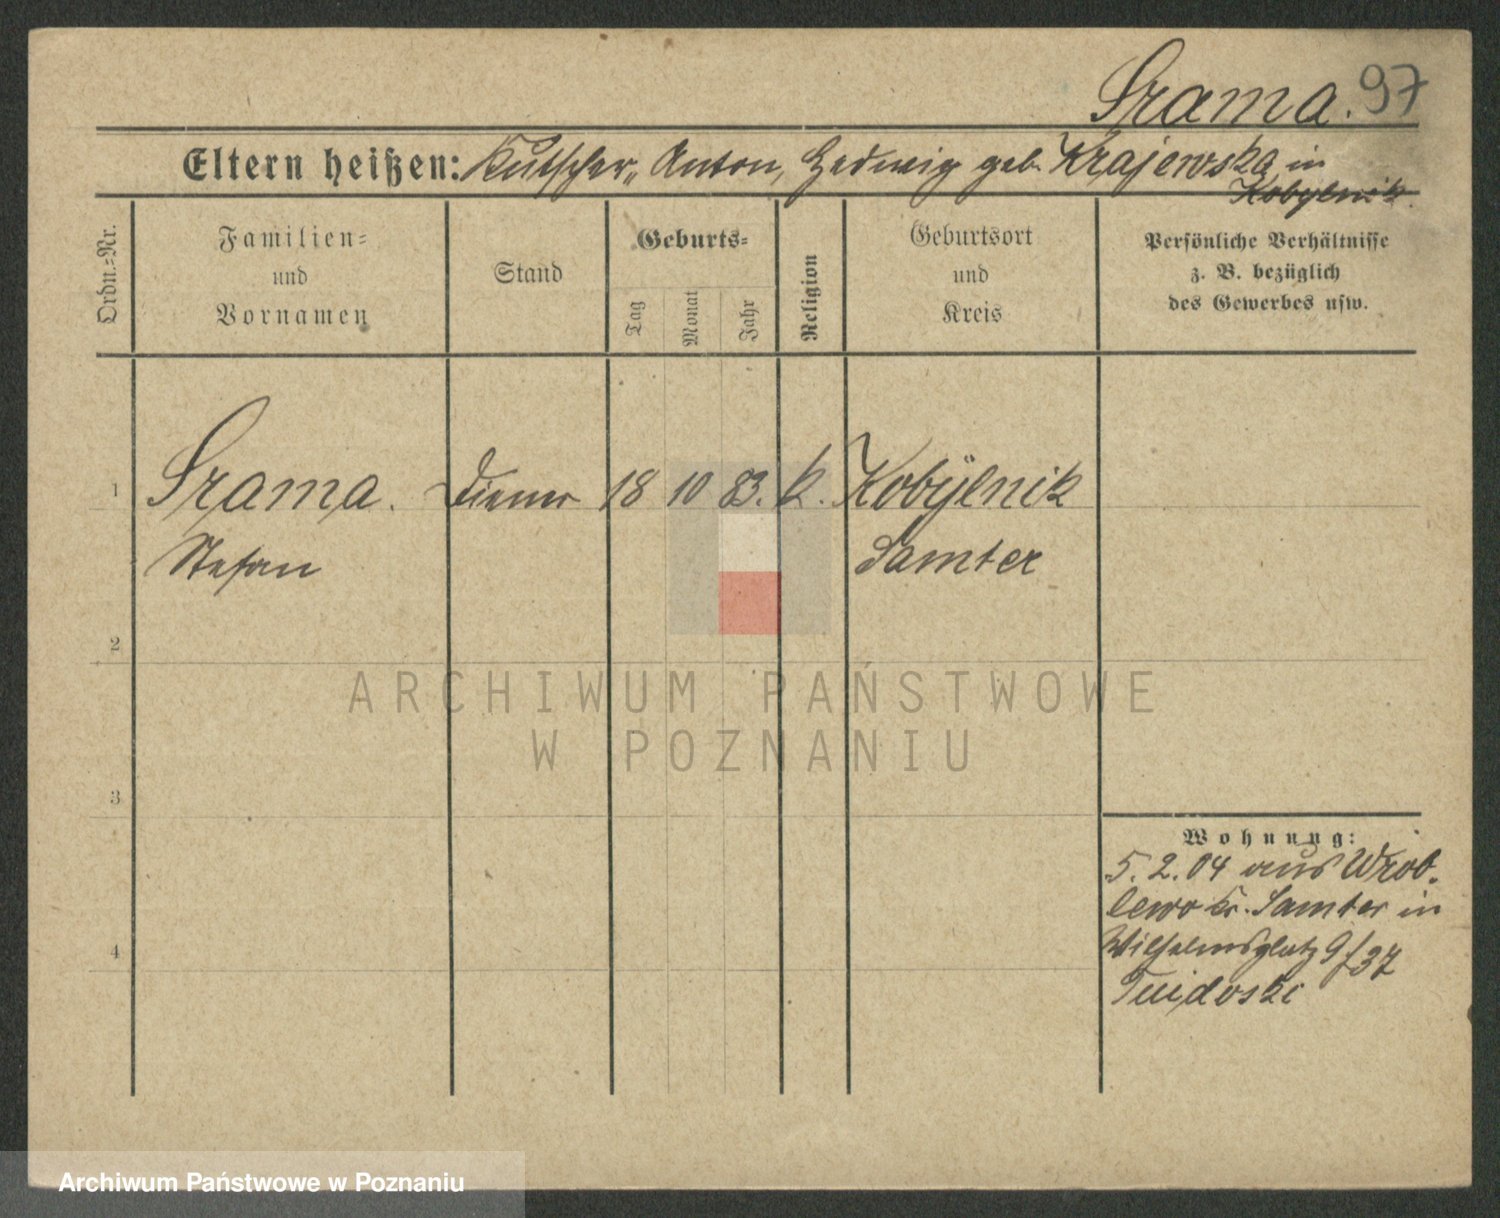 Srama. 97
Eltern heißen: Kutscher, Anton, Hedwig geb. Krajewska in
Kobylnik.
Ordn.-Nr.
Familien-
und
Vornamen
Stand
Geburts-
Tag
Monat
Jahr
Religion
Geburtsort
und
Kreis
Persönliche Verhältnisse
z. B. bezüglich
des Gewerbes usw.
1 Srama. Diener 18 10 83. k. Kobÿlnik
Stefan Samter
2
ARCHIWUM PAŃSTWOWE
W POZNANIU
3
Wohnung:
5.2.04 aus Wrob-
lewo Kr. Samter in
4
Wilhelmsplatz 9 f 37
Archiwum Państwowe w Poznaniu